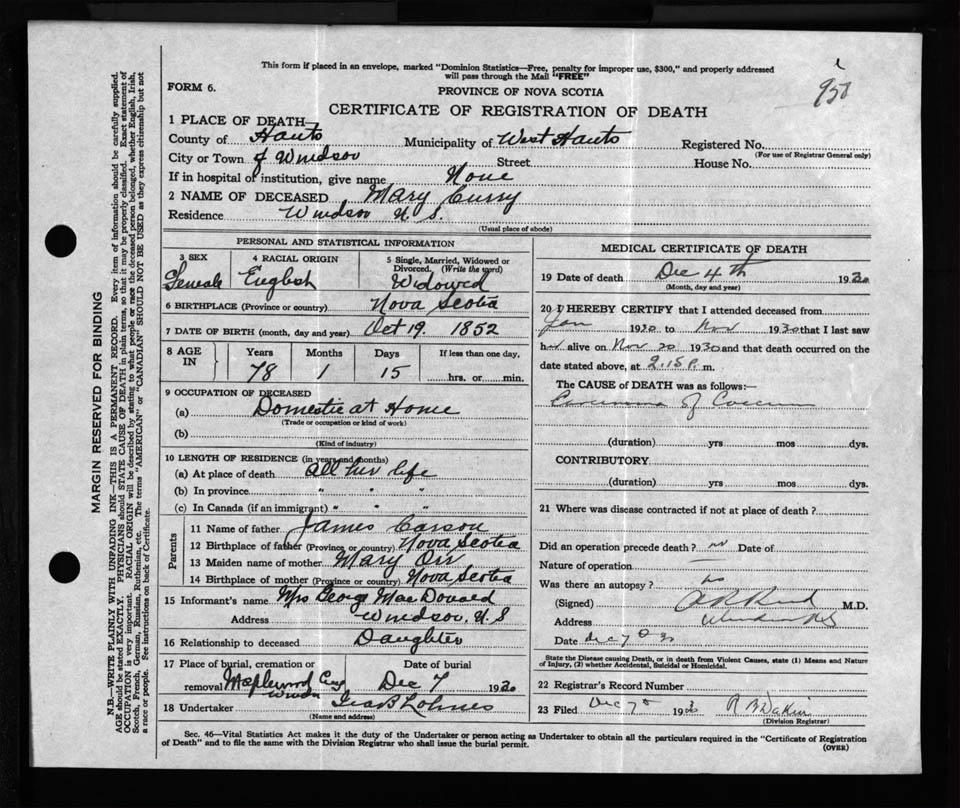 950
This form if placed in an envelope, marked "Dominion Statistics—Free, penalty for improper use, $300," and properly addressed
will pass through the Mail "FREE"
FORM 6.
PROVINCE OF NOVA SCOTIA
CERTIFICATE OF REGISTRATION OF DEATH
1 PLACE OF DEATH
County of Hants Municipality of West Hants Registered No.
(For use of Registrar General only)
City or Town of Windsor Street House No.
If in hospital or institution, give name None
2 NAME OF DECEASED Mary Curry
Residence Windsor N. S.
(Usual place of abode)
PERSONAL AND STATISTICAL INFORMATION
3 SEX 4 RACIAL ORIGIN 5 Single, Married, Widowed or
Divorced. (Write the word)
Female English Widowed
6 BIRTHPLACE (Province or Country) Nova Scotia
7 DATE OF BIRTH (month, day and year) Oct 19. 1852
8 AGE IN Years Months Days If less than one day,
78 1 15 hrs. or min.
9 OCCUPATION OF DECEASED
(a) Domestic at Home
(Trade or occupation or kind of work)
(b)
(Kind of industry)
10 LENGTH OF RESIDENCE (in years and months)
(a) At place of death All her life
(b) In province " " "
(c) In Canada (if an immigrant) " " "
Parents
11 Name of father James Carson
12 Birthplace of father (Province or country) Nova Scotia
13 Maiden name of mother Mary Orr
14 Birthplace of mother (Province or country) Nova Scotia
15 Informant's name Mrs George MacDonald
Address Windsor, N. S
16 Relationship to deceased Daughter
17 Place of burial, cremation or removal Date of burial
Maplewood Cmy Windsor Dec 7 1930
18 Undertaker Ira B Lohnes
(Name and address)
MEDICAL CERTIFICATE OF DEATH
19 Date of death Dec 4th 1930
(Month, day and year)
20 I HEREBY CERTIFY that I attended deceased from
Jan 1930 to Nov 1930 that I last saw
her alive on Nov 20 1930 and that death occurred on the
date stated above, at 2.15 P. m.
The CAUSE of DEATH was as follows:—
Carcinoma of Coecum
(duration) yrs mos dys.
CONTRIBUTORY
(duration) yrs. mos. dys.
21 Where was disease contracted if not at place of death?
Did an operation precede death? no Date of
Nature of operation
Was there an autopsy? no
(Signed) M.D.
Address Windsor NS
Date Dec 7 30
State the Disease causing Death, or in death from Violent Causes, state (1) Means and Nature
of Injury, (2) whether Accidental, Suicidal or Homicidal.
22 Registrar's Record Number
23 Filed Dec 7 1930
(Division Registrar)
Sec. 46—Vital Statistics Act makes it the duty of the Undertaker or person acting as Undertaker to obtain all the particulars required in the "Certificate of Registration
of Death" and to file the same with the Division Registrar who shall issue the burial permit.
(OVER)
MARGIN RESERVED FOR BINDING
N.B.—WRITE PLAINLY WITH UNFADING INK—THIS IS A PERMANENT RECORD. Every item of information should be carefully supplied.
AGE should be stated EXACTLY. PHYSICIANS should STATE CAUSE OF DEATH in plain terms, so that it may be properly classified. Exact statement of
OCCUPATION is very important. RACIAL ORIGIN will be described by stating to what people or race the deceased person belonged, whether English, Irish,
Scotch, French, German, Russian, Ruthenian, etc. The terms "AMERICAN" or "CANADIAN" SHOULD NOT BE USED as they express citizenship but not
a race or people. See instructions on back of Certificate.